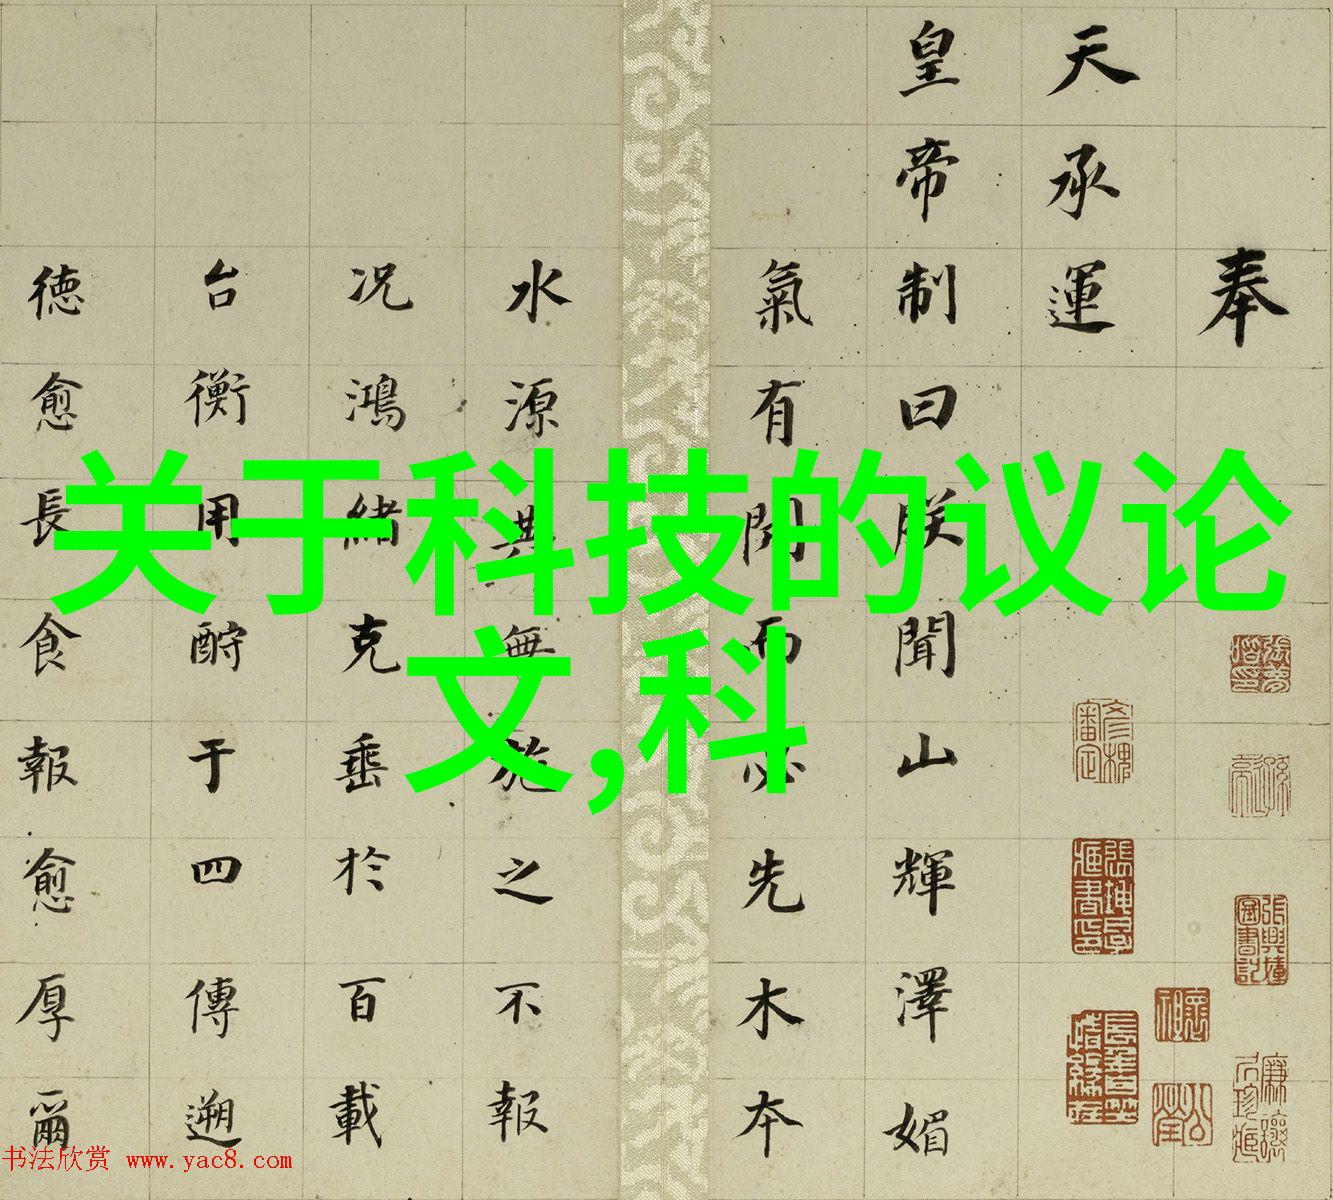 奉
天承運
皇帝制曰朕聞山輝澤媚
氣有開而必先木本
水源共無施之不報
况鴻緒克垂於百載
台衡用酧于四傳遡
德愈長食報愈厚爾
关于科技的议论
文,科
书法欣赏 www.yac8.com